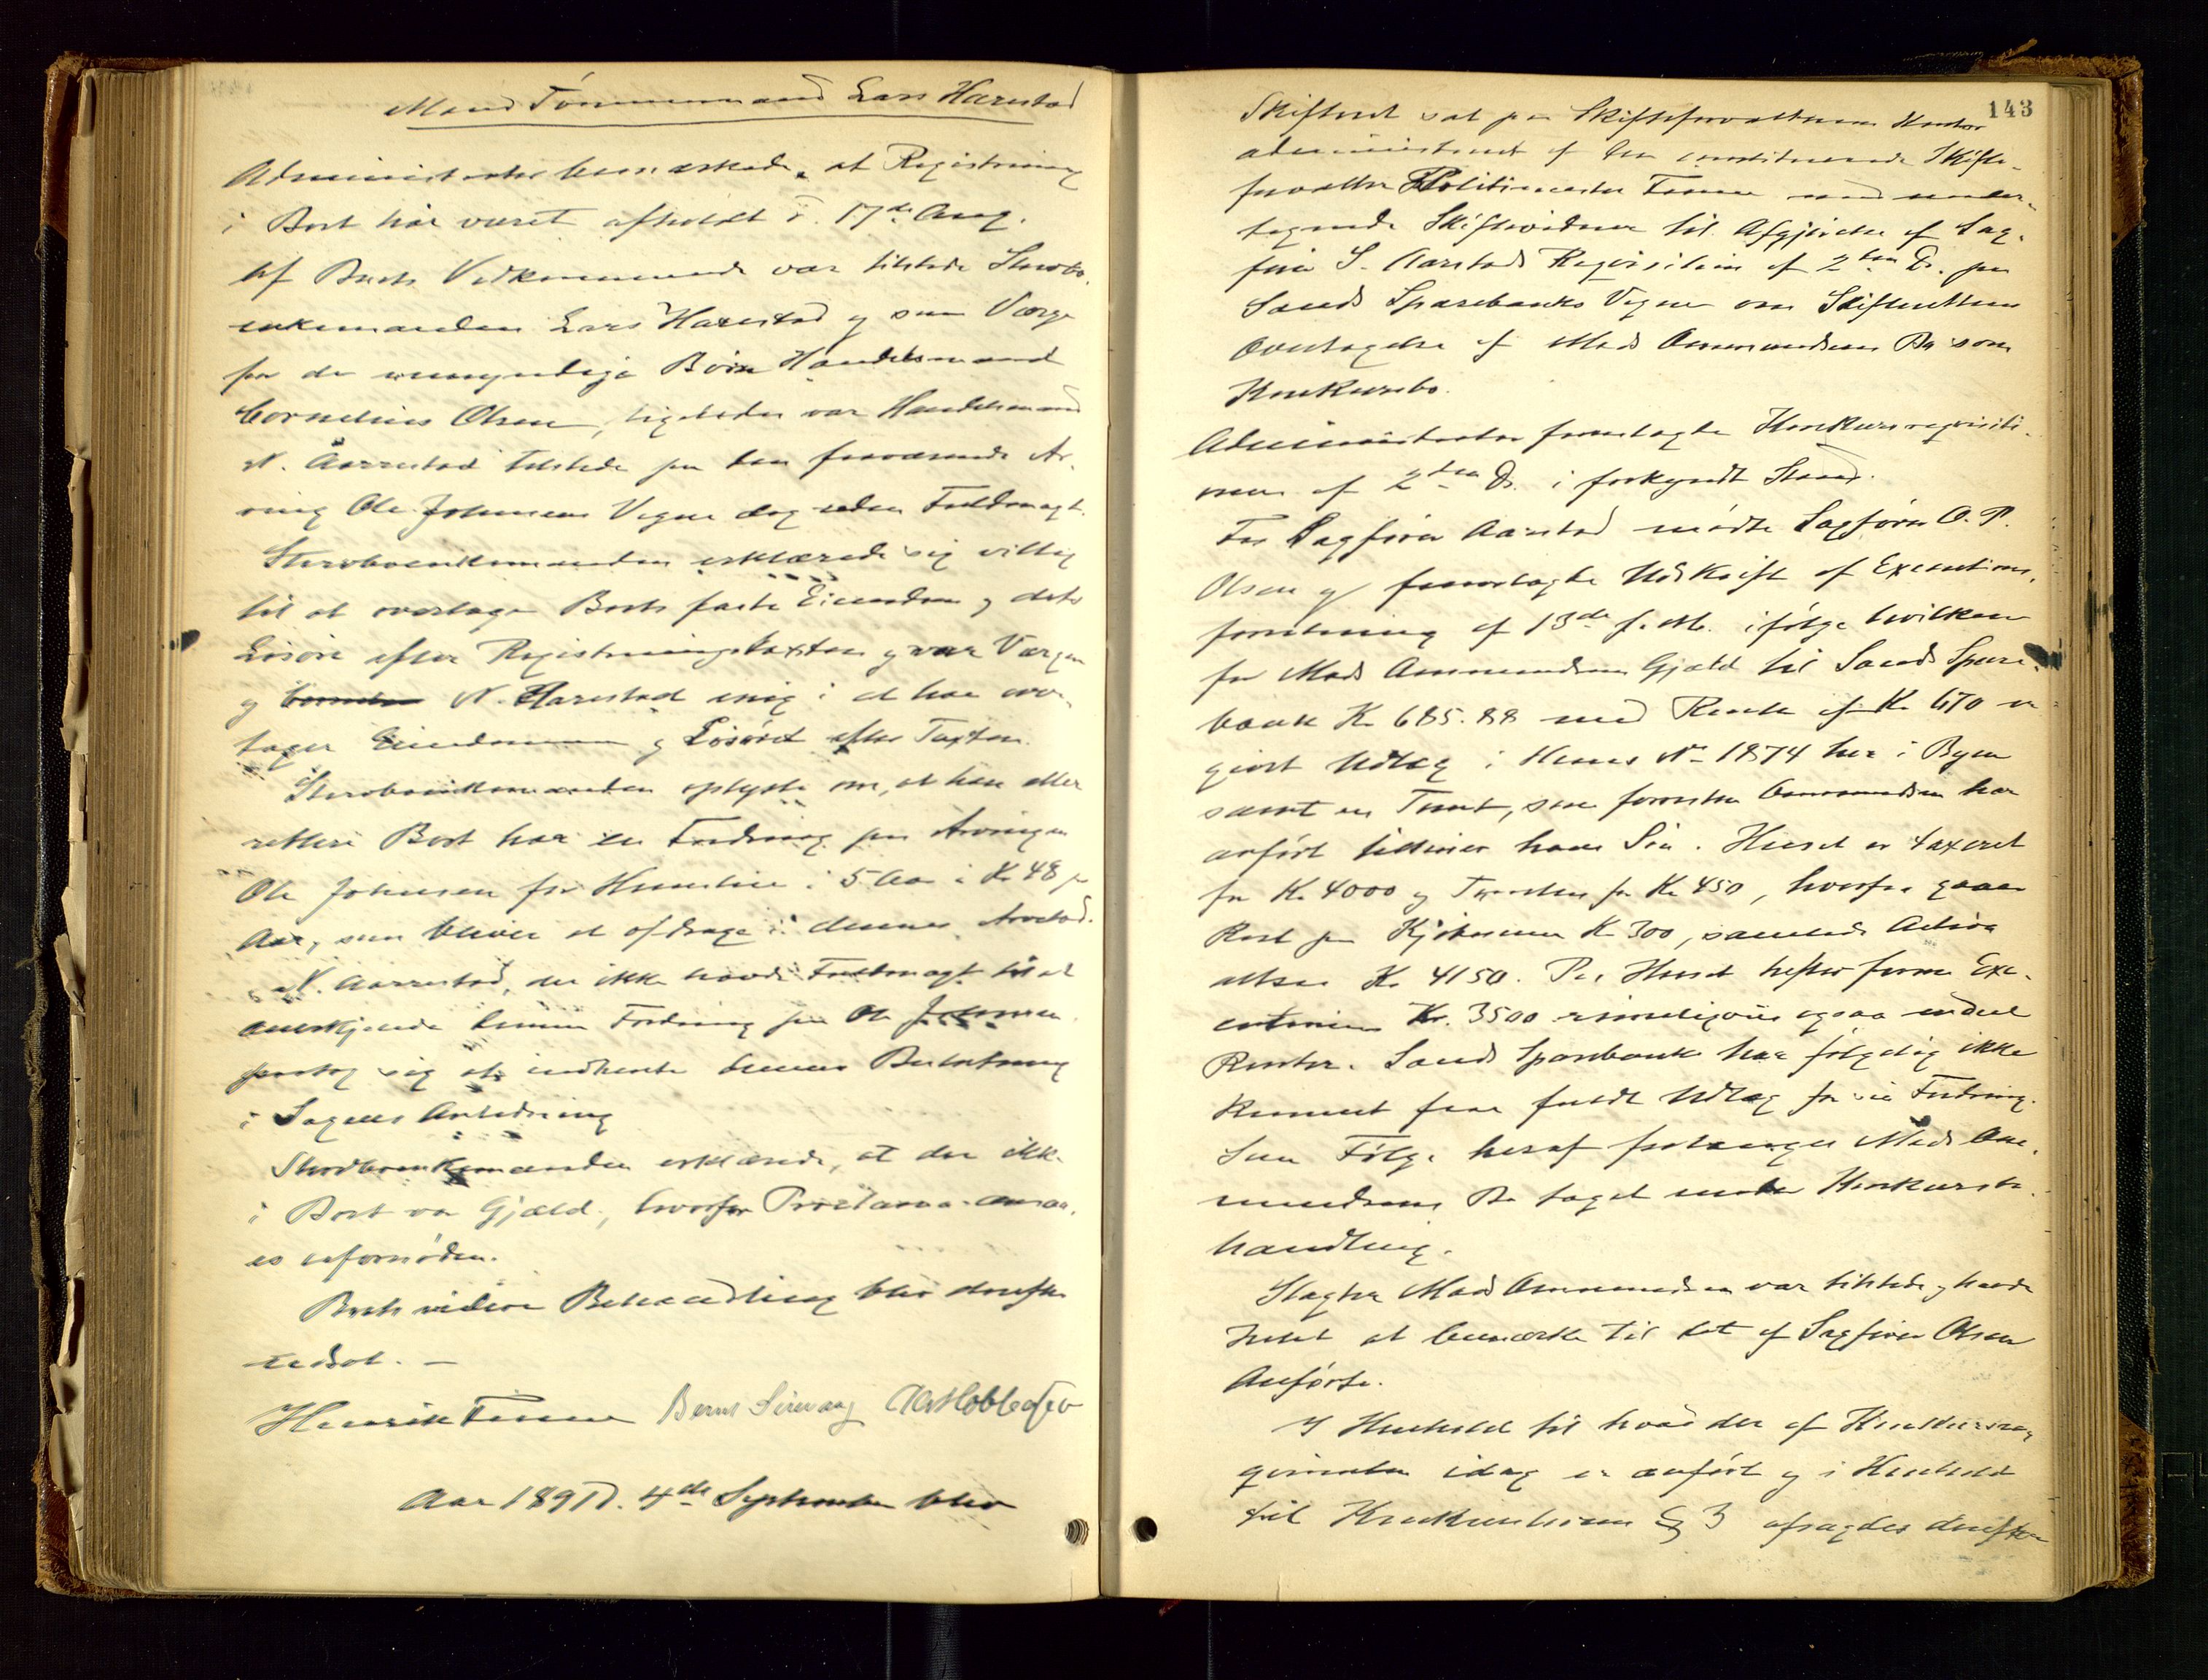 Mand Tømmermand Lars Harestad
Administrator bemærkede, at Registrering
i Boet har været afholdt d. 17de Aug.
Af Boets Vedkommende var tilstede Stervbo-
enkemanden Lars Harestad og som Værge
for de umyndige Børn Handelsmand
Cornelius Olsen, ligeledes var Handelsmand
N. Aarrestad tilstede paa den fraværende Ar-
ving Ole Johnsens Vegne dog uden Fuldmagt.
Stervboenkemanden erklærede sig villig
til at overtage Boets faste Eiendom og dets
Løsøre efter Registreringstaxten og var Værgen
og N. Harestad enig i at han over-
tager Eiendommen og Løsøret efter Taxten.
Stervboenkemanden oplyste om, at han eller
rettere Boet har en Fordring paa Arvingen
Ole Johnsen for Husleie i 5 Aar à Kr 48 pr
Aar, som bliver at afdrage i dennes Arvelod.
N. Aarrestad, der ikke havde Fuldmagt til at
anerkjende denne Fordring paa Ole Johnsen
paatog sig at indhente dennes Beslutning
i Sagens Anledning
Stervboenkemanden erklærede, at der ikke
i Boet var Gjæld, hvorfor Proclama ansaa-
es ufornøden.
Boets videre Behandling blev derefter
udsat. —
Henrik Finne Bernt Sirevaag
Aar 1891 d. 4de September blev
143
Skifteret sat paa Skifteforvalterens Kontor
administreret af den constituerede Skifte-
forvalter Politimester Finne med under-
tegnede Skiftevidner til Afgjørelse af Sag-
fører S. Aarstads Requisition af 2den Ds. paa
Sands Sparebanks Vegne om Skifterettens
Overtagelse af Mads Ommundsens Bo som
Konkursbo.
Administrator fremlagde Konkursrequisiti-
onen af 2den Ds. i forkyndt Stand.
For Sagfører Aarstad mødte Sagfører O. P.
Olsen og fremlagde Udskrift af Executions-
forretning af 13de f. M. ifølge hvilken
for Mads Ommundsens Gjæld til Sands Spare-
bank Kr 685.88 med Rente af Kr 670 er
gjort Udlæg i Huus No 1874 her i Byen
samt en Tomt, som Ommundsen har
anført tilhører ham Huset er taxeret
for Kr. 4000 og Tomten for Kr 450, hvorfra gaaer
Rest paa Kjøbesummen Kr 300, samlede Activa
altsaa Kr 4150. Paa Huset hefter forud Exe-
cutionen Kr. 3500 rimeligviis ogsaa endeel
Renter. Sands Sparebank har følgelig ikke
kunnet faa fuldt Udlæg for sin Fordring.
Som Følge heraf forlanges Mads Om-
mundsens Bo taget under Konkursbe-
handling.
Slagter Mads Ommundsen var tilstede og havde
Intet at bemærke til det af Sagfører Olsen
Anførte.
I Henhold til hvad der af Konkursre-
qvirenten idag er anført og i Henhold
til Konkursloven § 3 afsagdes derefter